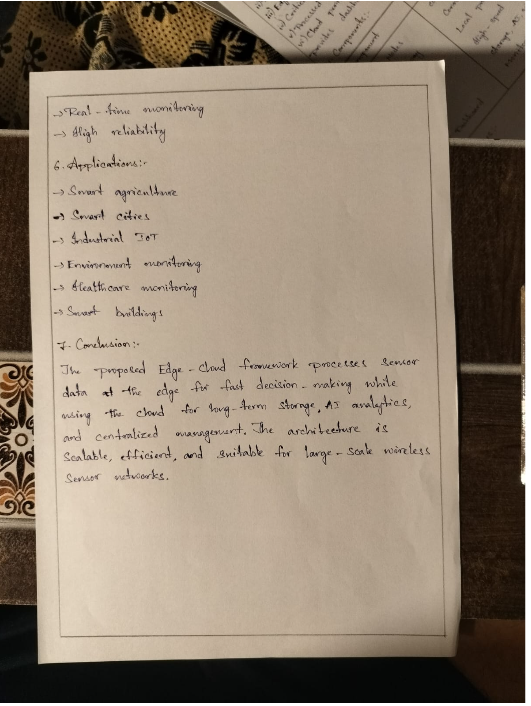 → Real-time monitoring
→ High reliability
6. Applications:-
→ Smart agriculture
→ Smart cities
→ Industrial IoT
→ Environment monitoring
→ Healthcare monitoring
→ Smart buildings
7. Conclusion:-
The proposed Edge-Cloud framework processes sensor
data at the edge for fast decision-making while
using the cloud for long-term storage, AI analytics,
and centralized management. The architecture is
scalable, efficient, and suitable for large-scale wireless
sensor networks.